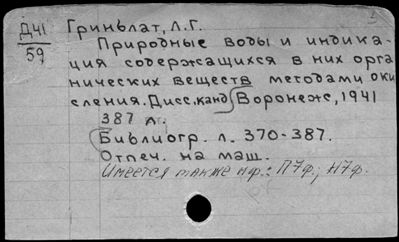 Д41
59
Гринблат, Л.Г.
Природные воды и индика-
ция содержащихся в них орга
нических веществ методами оки
сления. Дисс. канд Воронеж, 1941
387 л.
Библиогр. л. 370-387.
Отпеч. на маш.
Имеется также мф.: П7ф.; Н7ф.